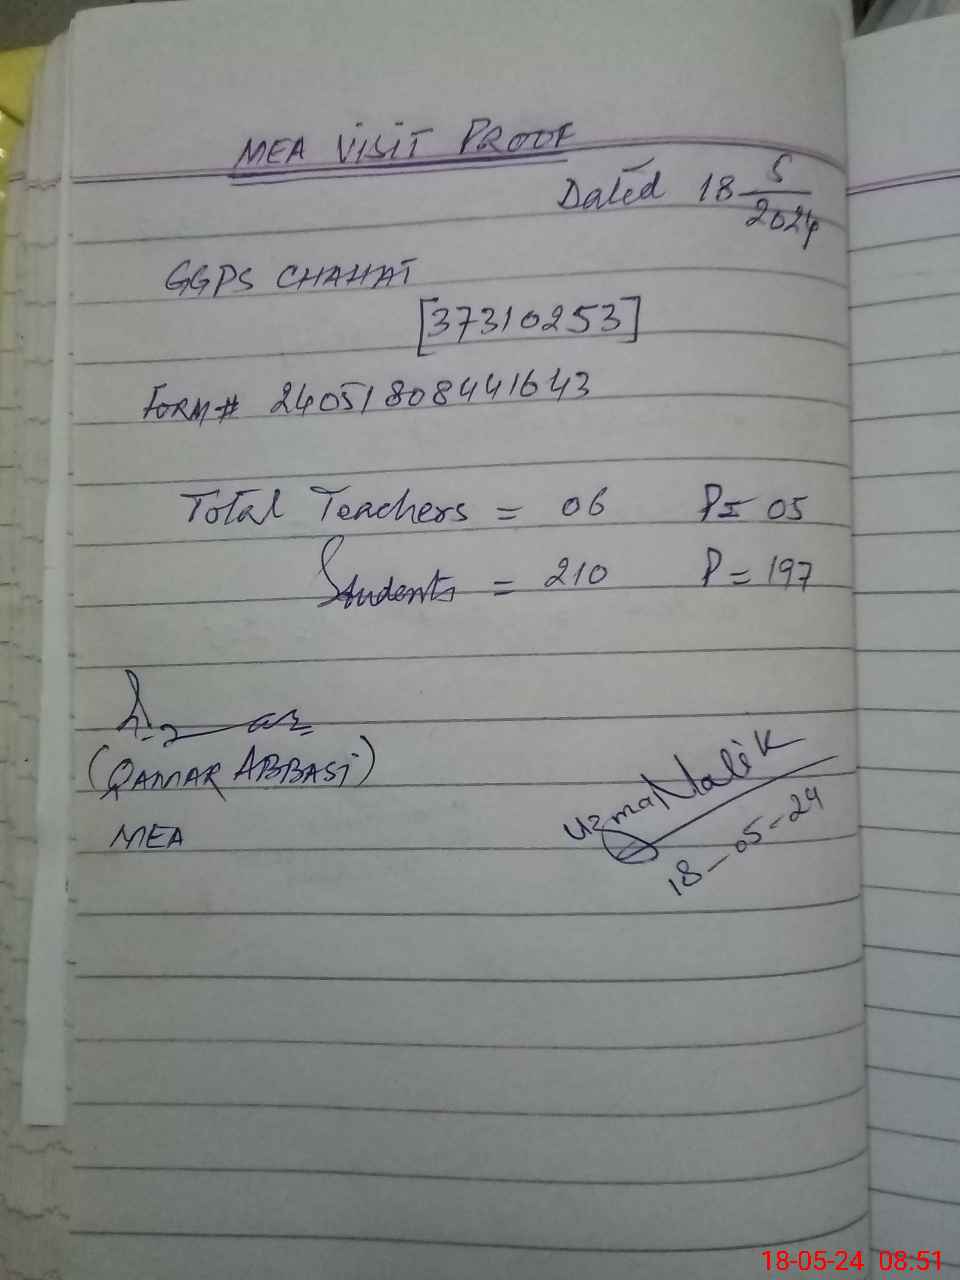 MEA VISIT PROOF
Dated 18 5/2024
GGPS CHAHAT
[37310253]
FORM# 24051808441643
Total Teachers = 06 P= 05
Students = 210 P = 197
(QAMAR ABBASI)
MEA
Uzma Malik
18-05-24
18-05-24 08:51